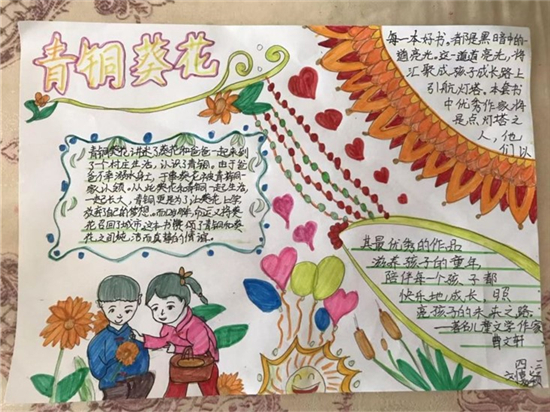 青铜葵花
每一本好书，都是黑暗中的一
道亮光。这一道道亮光，将
汇聚成孩子成长路上
引航灯塔。本套书
中优秀作家将
是点灯塔之
人，他
们以
青铜葵花讲述了葵花和爸爸一起来到
了个村庄生活，认识了青铜。由于爸
爸不幸溺水身亡，于是葵花被青铜一
家认领，从此葵花和青铜一起生活，
一起长大，青铜更是为了让葵花上学
放弃自己的梦想。而
召回了城市，这本书
花之间纯洁而真挚的情谊。
其最优秀的作品
滋养孩子的童年，
陪伴每一个孩子都
快乐地成长，照
亮孩子的未来之路。
——著名儿童文学作家
曹文轩
四三